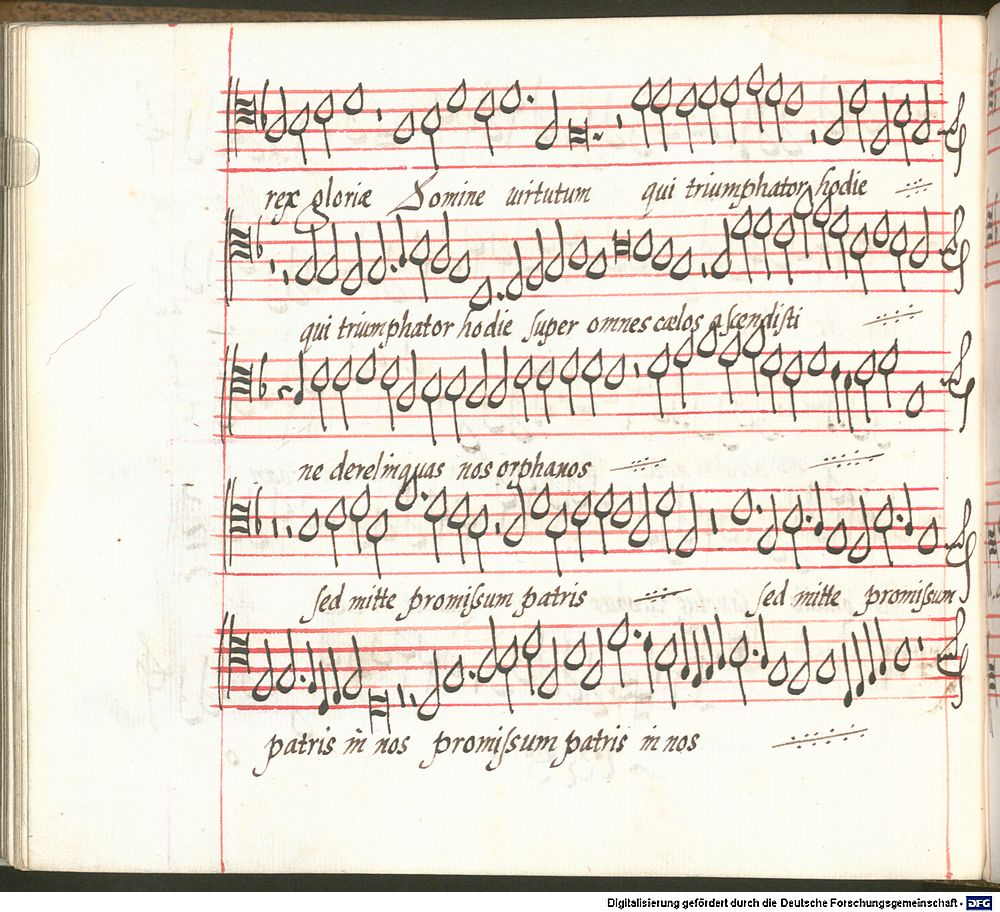 rex gloriæ Domine uirtutum qui triumphator hodie
qui triumphator hodie super omnes cælos ascendisti
ne derelinquas nos orphanos
sed mitte promissum patris sed mitte promissum
patris in nos promissum patris in nos
Digitalisierung gefördert durch die Deutsche Forschungsgemeinschaft - DFG